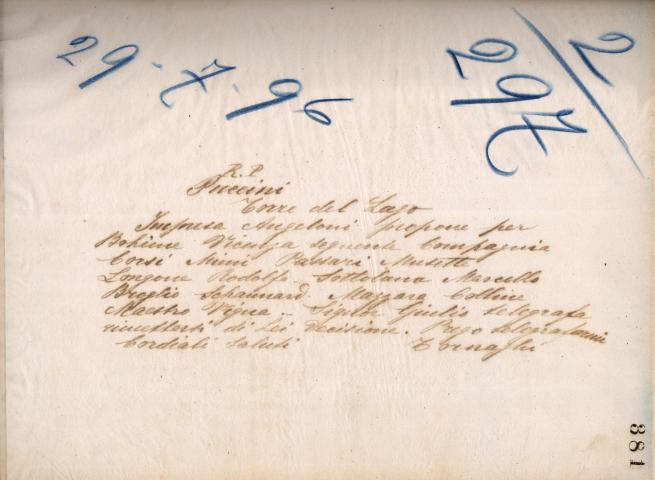 29·7·96
2
297
R.P.
Puccini
Torre del Lago
Impresa Angeloni propone per
Bohème Vicenza seguente Compagnia
Corsi Mimì Passari Musette
Longone Rodolfo Sottolana Marcello
Broglio Schaunard Mazzara Colline
Maestro Vigna. Signor Giulio telegrafa
rimettersi di Lei decisione. Prego telegrafarmi
Cordiali saluti Tornaghi
381